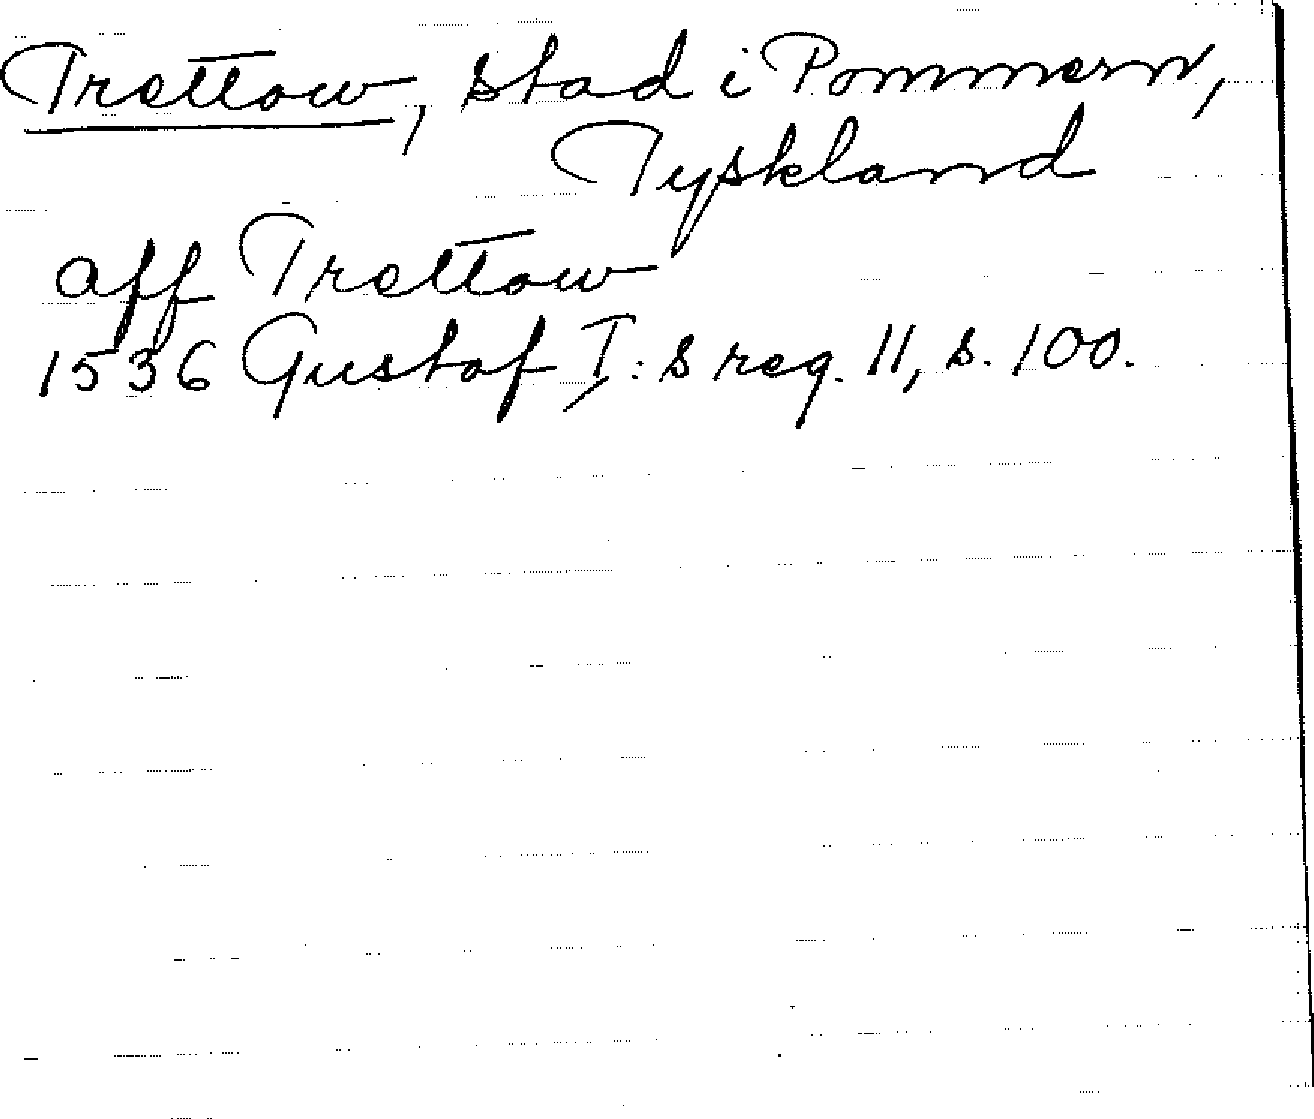 Trettow, stad i Pommern,
Tyskland
aff Trettow
1536 Gustaf I:s reg. 11, s. 100.